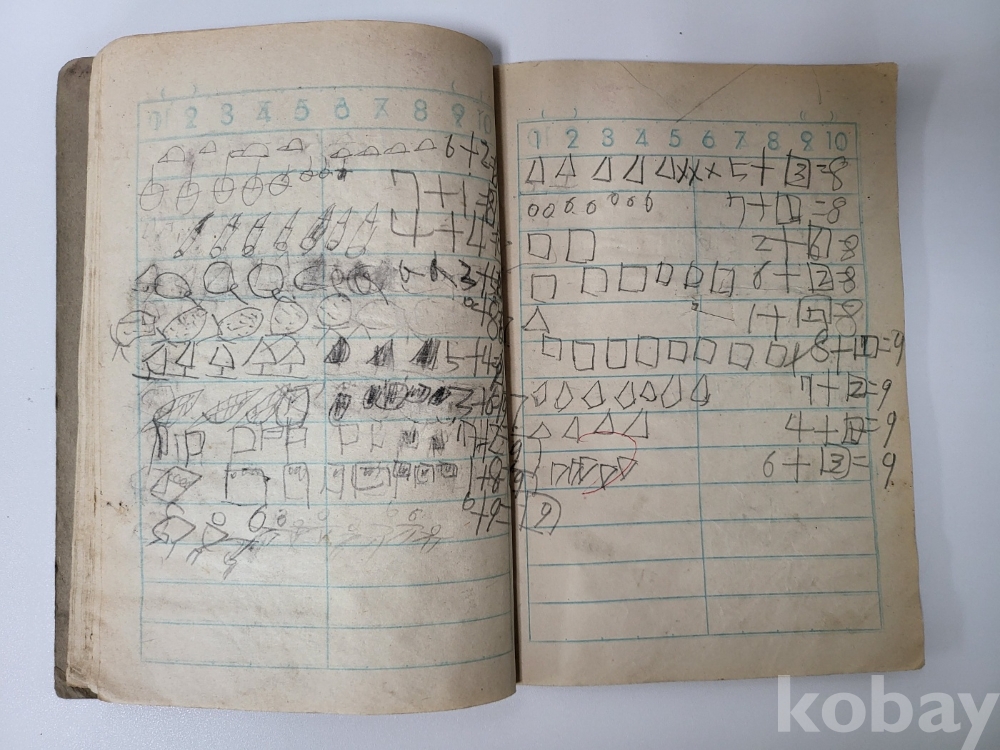 1 2 3 4 5 6 7 8 9 10
6+2=
7+1=8
4+4=
3+
5+4=9
3+6=
7+2=
1+8=9
0+9=9
1 2 3 4 5 6 7 8 9 10
5+3=8
7+1=8
2+6=8
6+2=8
1+7=8
8+1=9
7+2=9
4+5=9
6+3=9
kobay